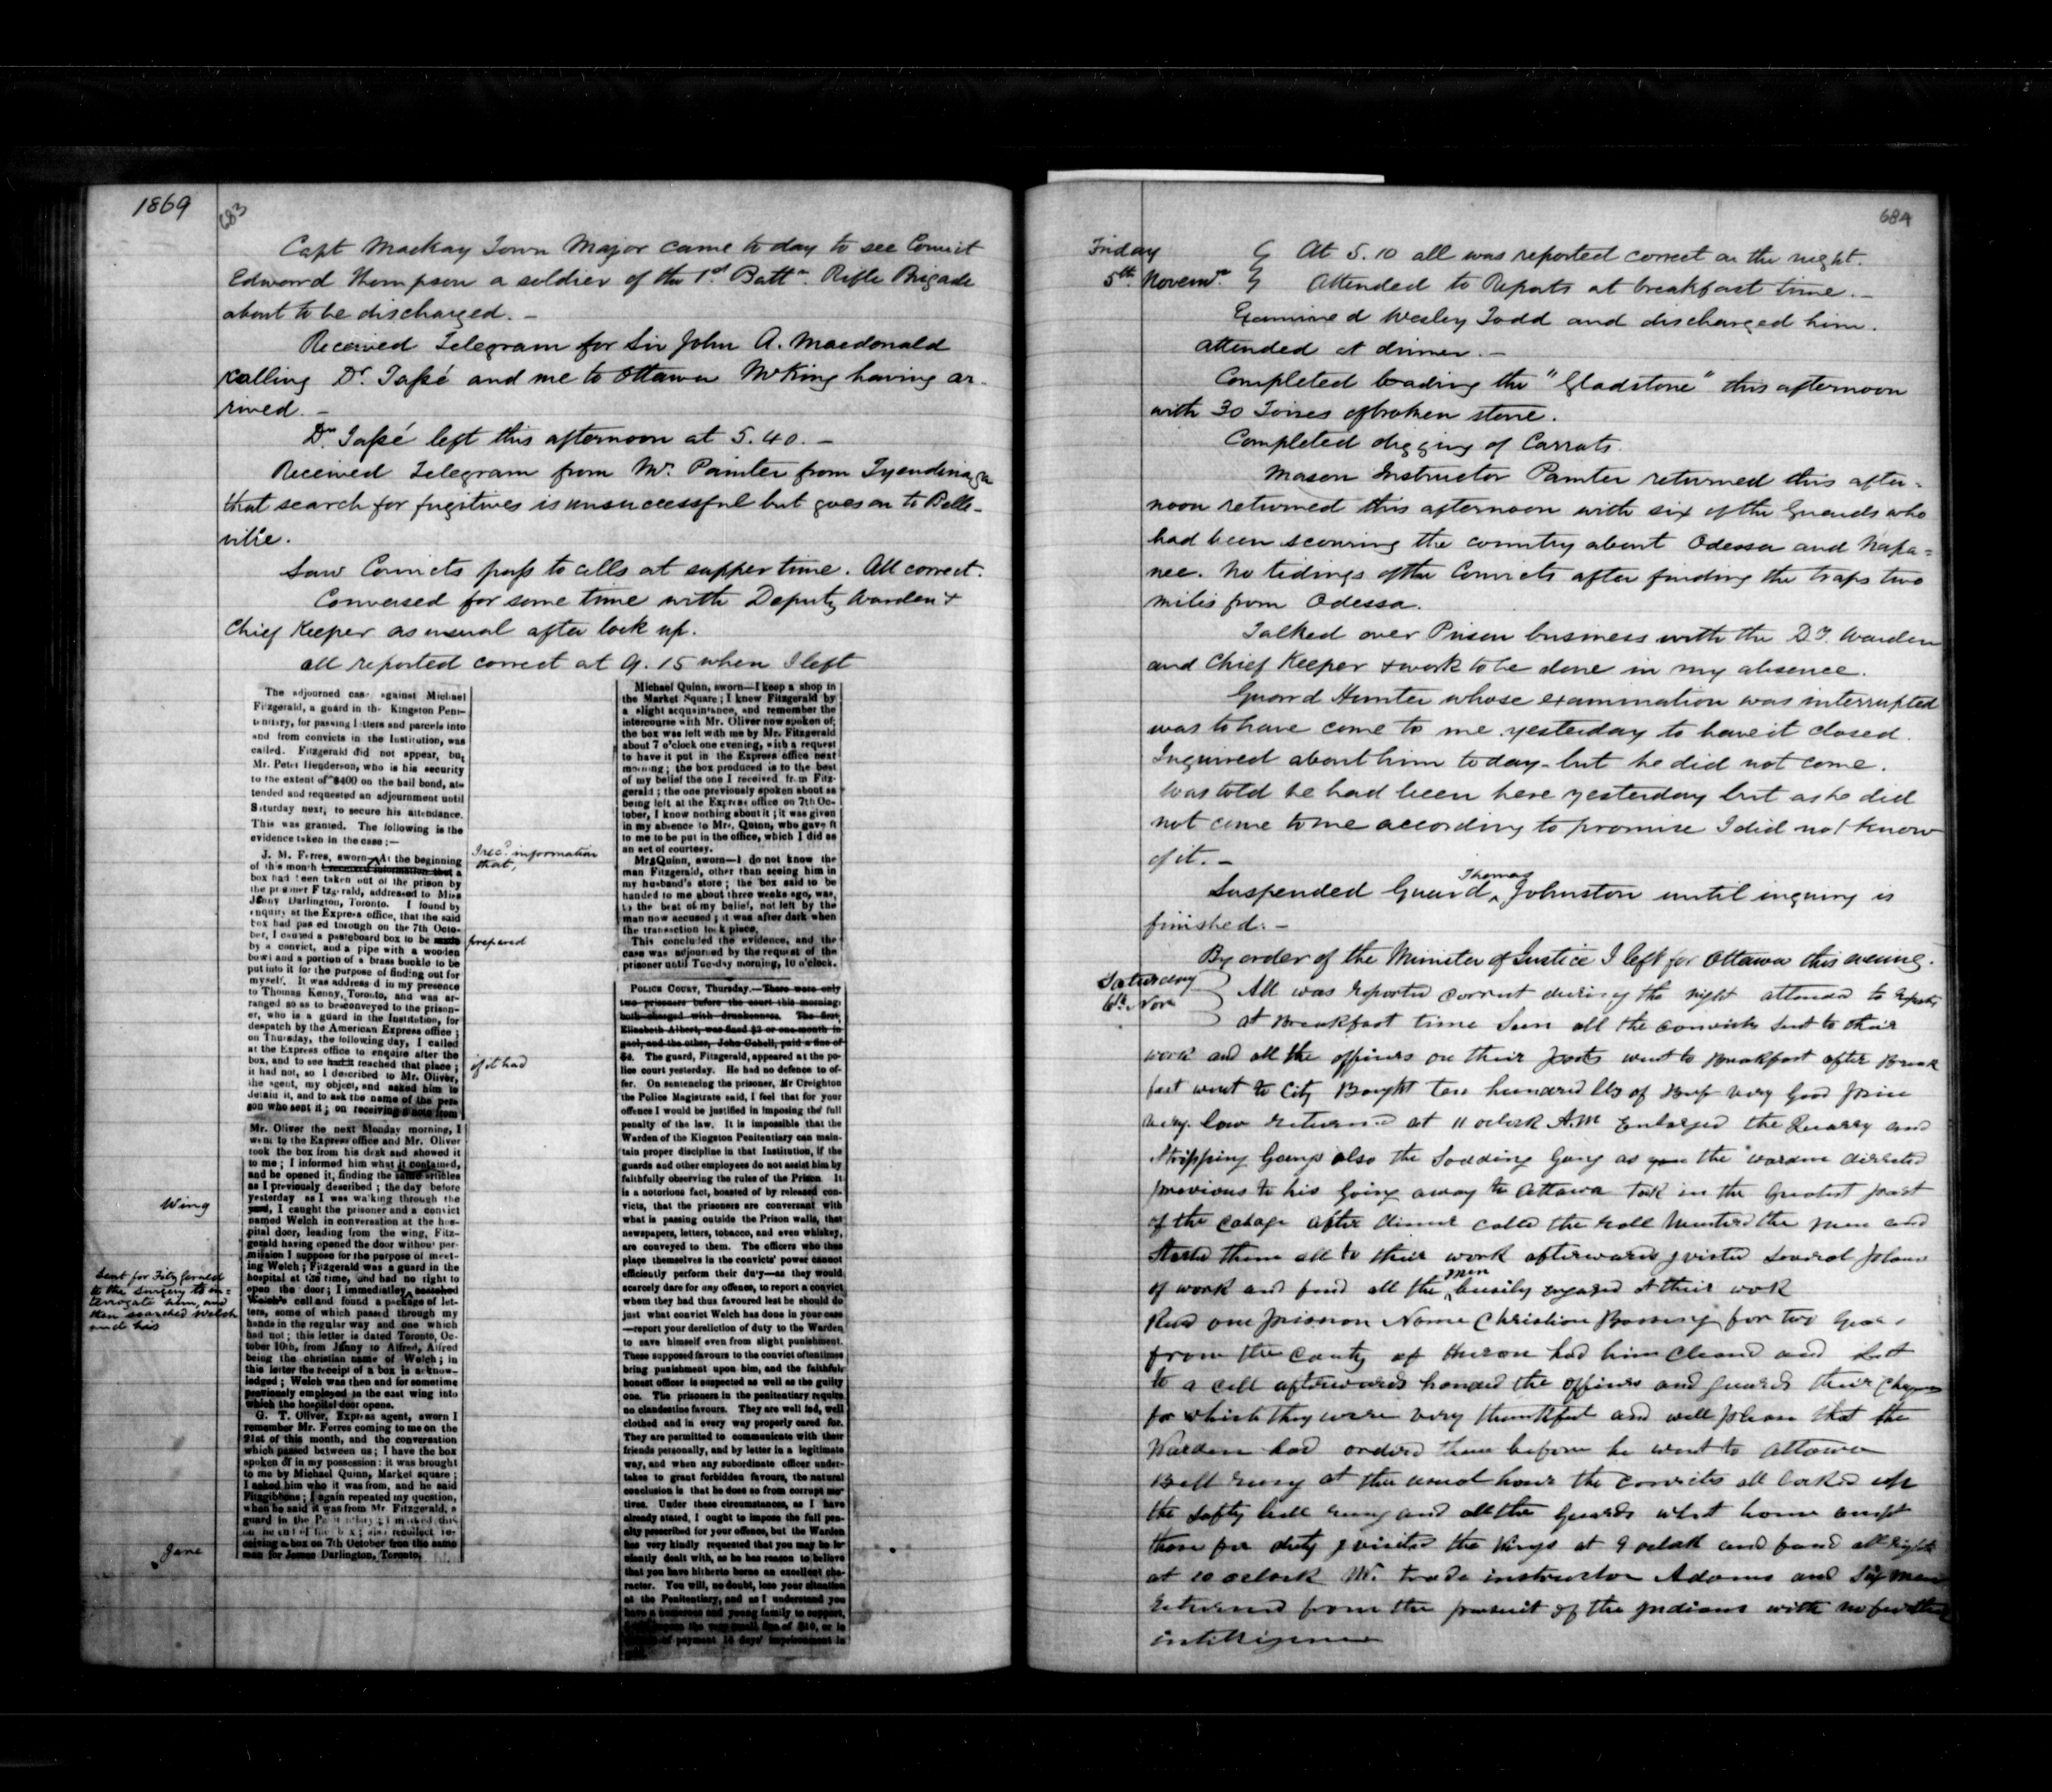 1869
683
Capt Mackay Town Major came to day to see Convict
Edward Thompson a soldier of the 1st Battn. Rifle Brigade
about to be discharged. –
Received Telegram for Sir John A. Macdonald
calling Dr. Tassé and me to Ottawa Mr King having ar-
rived. –
Dr. Tassé left this afternoon at 5.40. –
Received Telegram from Mr. Painter from Tyendinaga
that search for fugitives is unsuccessful but goes on to Belle-
ville.
Saw Convicts pass to cells at supper time. All correct.
Conversed for some time with Deputy Warden &
Chief Keeper as usual after lock up.
All reported correct at 9.15 when I left
The adjourned case against Michael
Fitzgerald, a guard in the Kingston Peni-
tentiary, for passing letters and parcels into
and from convicts in the Institution, was
called. Fitzgerald did not appear, but
Mr. Peter Henderson, who is his security
to the extent of $400 on the bail bond, at-
tended and requested an adjournment until
Saturday next, to secure his attendance.
This was granted. The following is the
evidence taken in the case:—
J. M. Ferres, sworn—At the beginning
of this month I received information that a
I recd. information
that,
box had been taken out of the prison by
the prisoner Fitzgerald, addressed to Miss
Jenny Darlington, Toronto. I found by
enquiry at the Express office, that the said
box had passed through on the 7th Octo-
ber, I caused a pasteboard box to be made
prepared
by a convict, and a pipe with a wooden
bowl and a portion of a brass buckle to be
put into it for the purpose of finding out for
myself. It was addressed in my presence
to Thomas Kenny, Toronto, and was ar-
ranged so as to be conveyed to the prison-
er, who is a guard in the Institution, for
despatch by the American Express office;
on Thursday, the following day, I called
at the Express office to enquire after the
box, and to see had it reached that place;
if it had
it had not, so I described to Mr. Oliver,
the agent, my object, and asked him to
detain it, and to ask the name of the per-
son who sent it; on receiving a note from
Mr. Oliver the next Monday morning, I
went to the Express office and Mr. Oliver
took the box from his desk and showed it
to me; I informed him what it contained,
and he opened it, finding the same articles
as I previously described; the day before
yesterday as I was walking through the
Wing
yard, I caught the prisoner and a convict
named Welch in conversation at the hos-
pital door, leading from the wing, Fitz-
gerald having opened the door without per-
mission I suppose for the purpose of meet-
ing Welch; Fitzgerald was a guard in the
hospital at the time, and had no right to
open the door; I immediately searched
Sent for Fitzgerald
to the Surgery to in-
terrogate him, and
then searched Welch
and his
Welch's cell and found a package of let-
ters, some of which passed through my
hands in the regular way and one which
had not; this letter is dated Toronto, Oc-
tober 10th, from Jenny to Alfred, Alfred
being the christian name of Welch; in
this letter the receipt of a box is acknow-
ledged; Welch was then and for sometime
previously employed in the east wing into
which the hospital door opens.
G. T. Oliver, Express agent, sworn I
remember Mr. Ferres coming to me on the
21st of this month, and the conversation
which passed between us; I have the box
spoken of in my possession: it was brought
to me by Michael Quinn, Market square;
I asked him who it was from, and he said
Fitzgibbons; I again repeated my question,
when he said it was from Mr. Fitzgerald, a
guard in the Penitentiary; I marked this
on the end of the box; also recollect re-
ceiving a box on 7th October from the same
man for James Darlington, Toronto.
Jane
Michael Quinn, sworn—I keep a shop in
the Market Square; I knew Fitzgerald by
a slight acquaintance, and remember the
intercourse with Mr. Oliver now spoken of;
the box was left with me by Mr. Fitzgerald
about 7 o'clock one evening, with a request
to have it put in the Express office next
morning; the box produced is to the best
of my belief the one I received from Fitz-
gerald; the one previously spoken about as
being left at the Express office on 7th Oc-
tober, I know nothing about it; it was given
in my absence to Mrs. Quinn, who gave it
to me to be put in the office, which I did as
an act of courtesy.
Mrs Quinn, sworn—I do not know the
man Fitzgerald, other than seeing him in
my husband's store; the box said to be
handed to me about three weeks ago, was,
to the best of my belief, not left by the
man now accused; it was after dark when
the transaction took place.
This concluded the evidence, and the
case was adjourned by the request of the
prisoner until Tuesday morning, 10 o'clock.
POLICE COURT, Thursday.—There were only
two prisoners before the court this morning,
both charged with drunkenness. The first,
Elizabeth Albert, was fined $2 or one month in
gaol, and the other, John Cahell, paid a fine of
$4. The guard, Fitzgerald, appeared at the po-
lice court yesterday. He had no defence to of-
fer. On sentencing the prisoner, Mr Creighton
the Police Magistrate said, I feel that for your
offence I would be justified in imposing the full
penalty of the law. It is impossible that the
Warden of the Kingston Penitentiary can main-
tain proper discipline in that Institution, if the
guards and other employees do not assist him by
faithfully observing the rules of the Prison. It
is a notorious fact, boasted of by released con-
victs, that the prisoners are conversant with
what is passing outside the Prison walls, that
newspapers, letters, tobacco, and even whiskey,
are conveyed to them. The officers who thus
place themselves in the convicts' power cannot
efficiently perform their duty—as they would
scarcely dare for any offence, to report a convict
whom they had thus favoured lest he should do
just what convict Welch has done in your case
—report your dereliction of duty to the Warden
to save himself even from slight punishment.
These supposed favours to the convict oftentimes
bring punishment upon him, and the faithful
honest officer is suspected as well as the guilty
one. The prisoners in the penitentiary require
no clandestine favours. They are well fed, well
clothed and in every way properly cared for.
They are permitted to communicate with their
friends personally, and by letter in a legitimate
way, and when any subordinate officer under-
takes to grant forbidden favours, the natural
conclusion is that he does so from corrupt mo-
tives. Under these circumstances, as I have
already stated, I ought to impose the full pen-
alty prescribed for your offence, but the Warden
has very kindly requested that you may be le-
niently dealt with, as he has reason to believe
that you have hitherto borne an excellent cha-
racter. You will, no doubt, lose your situation
at the Penitentiary, and as I understand you
have a numerous and young family to support,
the very small fine of $10, or in
of payment 15 days' imprisonment in
684
Friday
5th Novemr.
At 5.10 all was reported correct on the night.
Attended to Reports at breakfast time. –
Examined Wesley Todd and discharged him.
Attended at dinner. –
Completed loading the "Gladstone" this afternoon
with 30 Toises of broken stone.
Completed digging of Carrots.
Mason Instructor Painter returned this after-
noon returned this afternoon with six of the Guards who
had been scouring the country about Odessa and Napa-
nee. No tidings of the Convicts after finding the traps two
miles from Odessa.
Talked over Prison business with the Dy. Warden
and Chief Keeper & work to be done in my absence.
Guard Hunter whose examination was interrupted
was to have come to me yesterday to have it closed.
Inquired about him to day – but he did not come.
Was told he had been here yesterday but as he did
not come to me according to promise I did not know
of it. –
Suspended Guard Thomas Johnston until inquiry is
finished. –
By order of the Minister of Justice I left for Ottawa this evening.
Saturday
6th Nov
All was reported correct during the night attended to reports
at Breakfast time Seen all the convicts sent to their
work and all the officers on their posts went to Breakfast after Break
fast went to City Bought ten hundred lbs of Beef very Good price
very low returned at 11 oclock A.M Enlarged the Quarry and
Stripping Gangs also the Sodding Gang as the warden directed
previous to his Going away to Ottawa took in the Greatest part
of the Cabage after dinner called the roll Mustered the men and
Started them all to their work afterwards visited several places
of work and found all the men busily engaged at their work
Recd one prisoner Name Christian for two Years
from the County of Huron had him Cleaned and
to a cell afterwards handed the officers and guards their Cheques
for which they were very thankful and well please that the
Warden had ordered them before he went to Ottawa
Bell rung at the usual hour the convicts all locked up
the Safty bell rung and all the Guards went home except
those for duty visited the Wings at 9 oclock and found all right
at 10 oclock Mr. trade instructor Adams and Six men
returned from the pursuit of the Indians with no further
intelligence